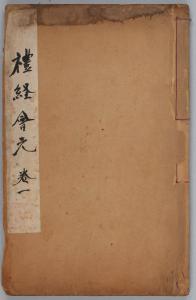 禮経會元 卷一